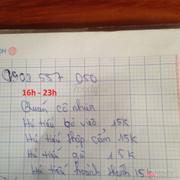 0902 557 050
16h - 23h
Quán cô nhiên
Hủ tiếu bò viên 15k
Hủ tiếu thập cẩm 15k
Hủ tiếu gà 15k
Hủ tiếu hoành thánh 15k